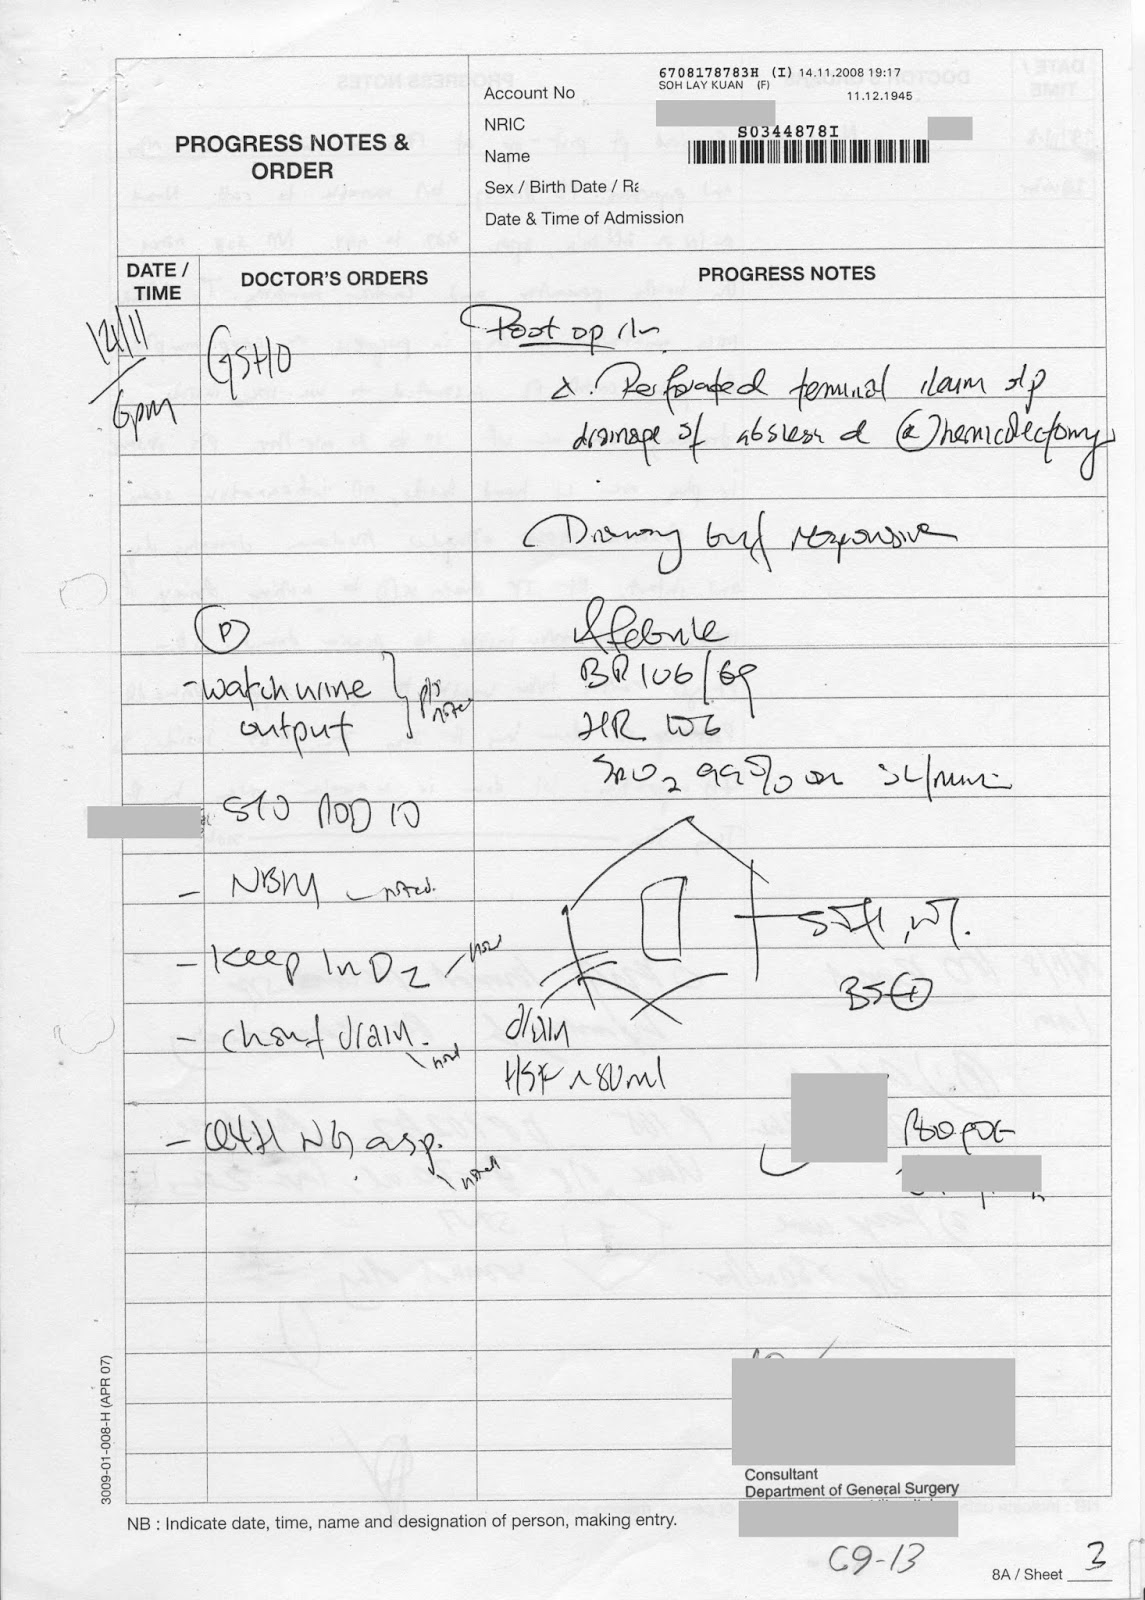 6708178783H (I) 14.11.2008 19:17
SOH LAY KUAN (F)
11.12.1945
Account No
NRIC
S0344878I
PROGRESS NOTES &
ORDER
Name
Sex / Birth Date / Ra
Date & Time of Admission
DATE /
TIME
DOCTOR'S ORDERS
PROGRESS NOTES
14/11
6pm
GSHO
Post op r/v
Δ: Perforated terminal ileum s/p
drainage of abscess & (R) hemicolectomy
Drowsy but responsive
(P)
Afebrile
- watch urine
output
noted
BP 106/69
HR 106
SpO2 99% on 3L/min
STO POD 10
- NBM - noted.
SNT, NT.
- Keep INO2
BS (+)
- Chart drain. noted
drain
HSF ~80ml
- Q4H NG asp.
noted
Consultant
Department of General Surgery
3009-01-008-H (APR 07)
NB : Indicate date, time, name and designation of person, making entry.
C9-13
8A / Sheet 3